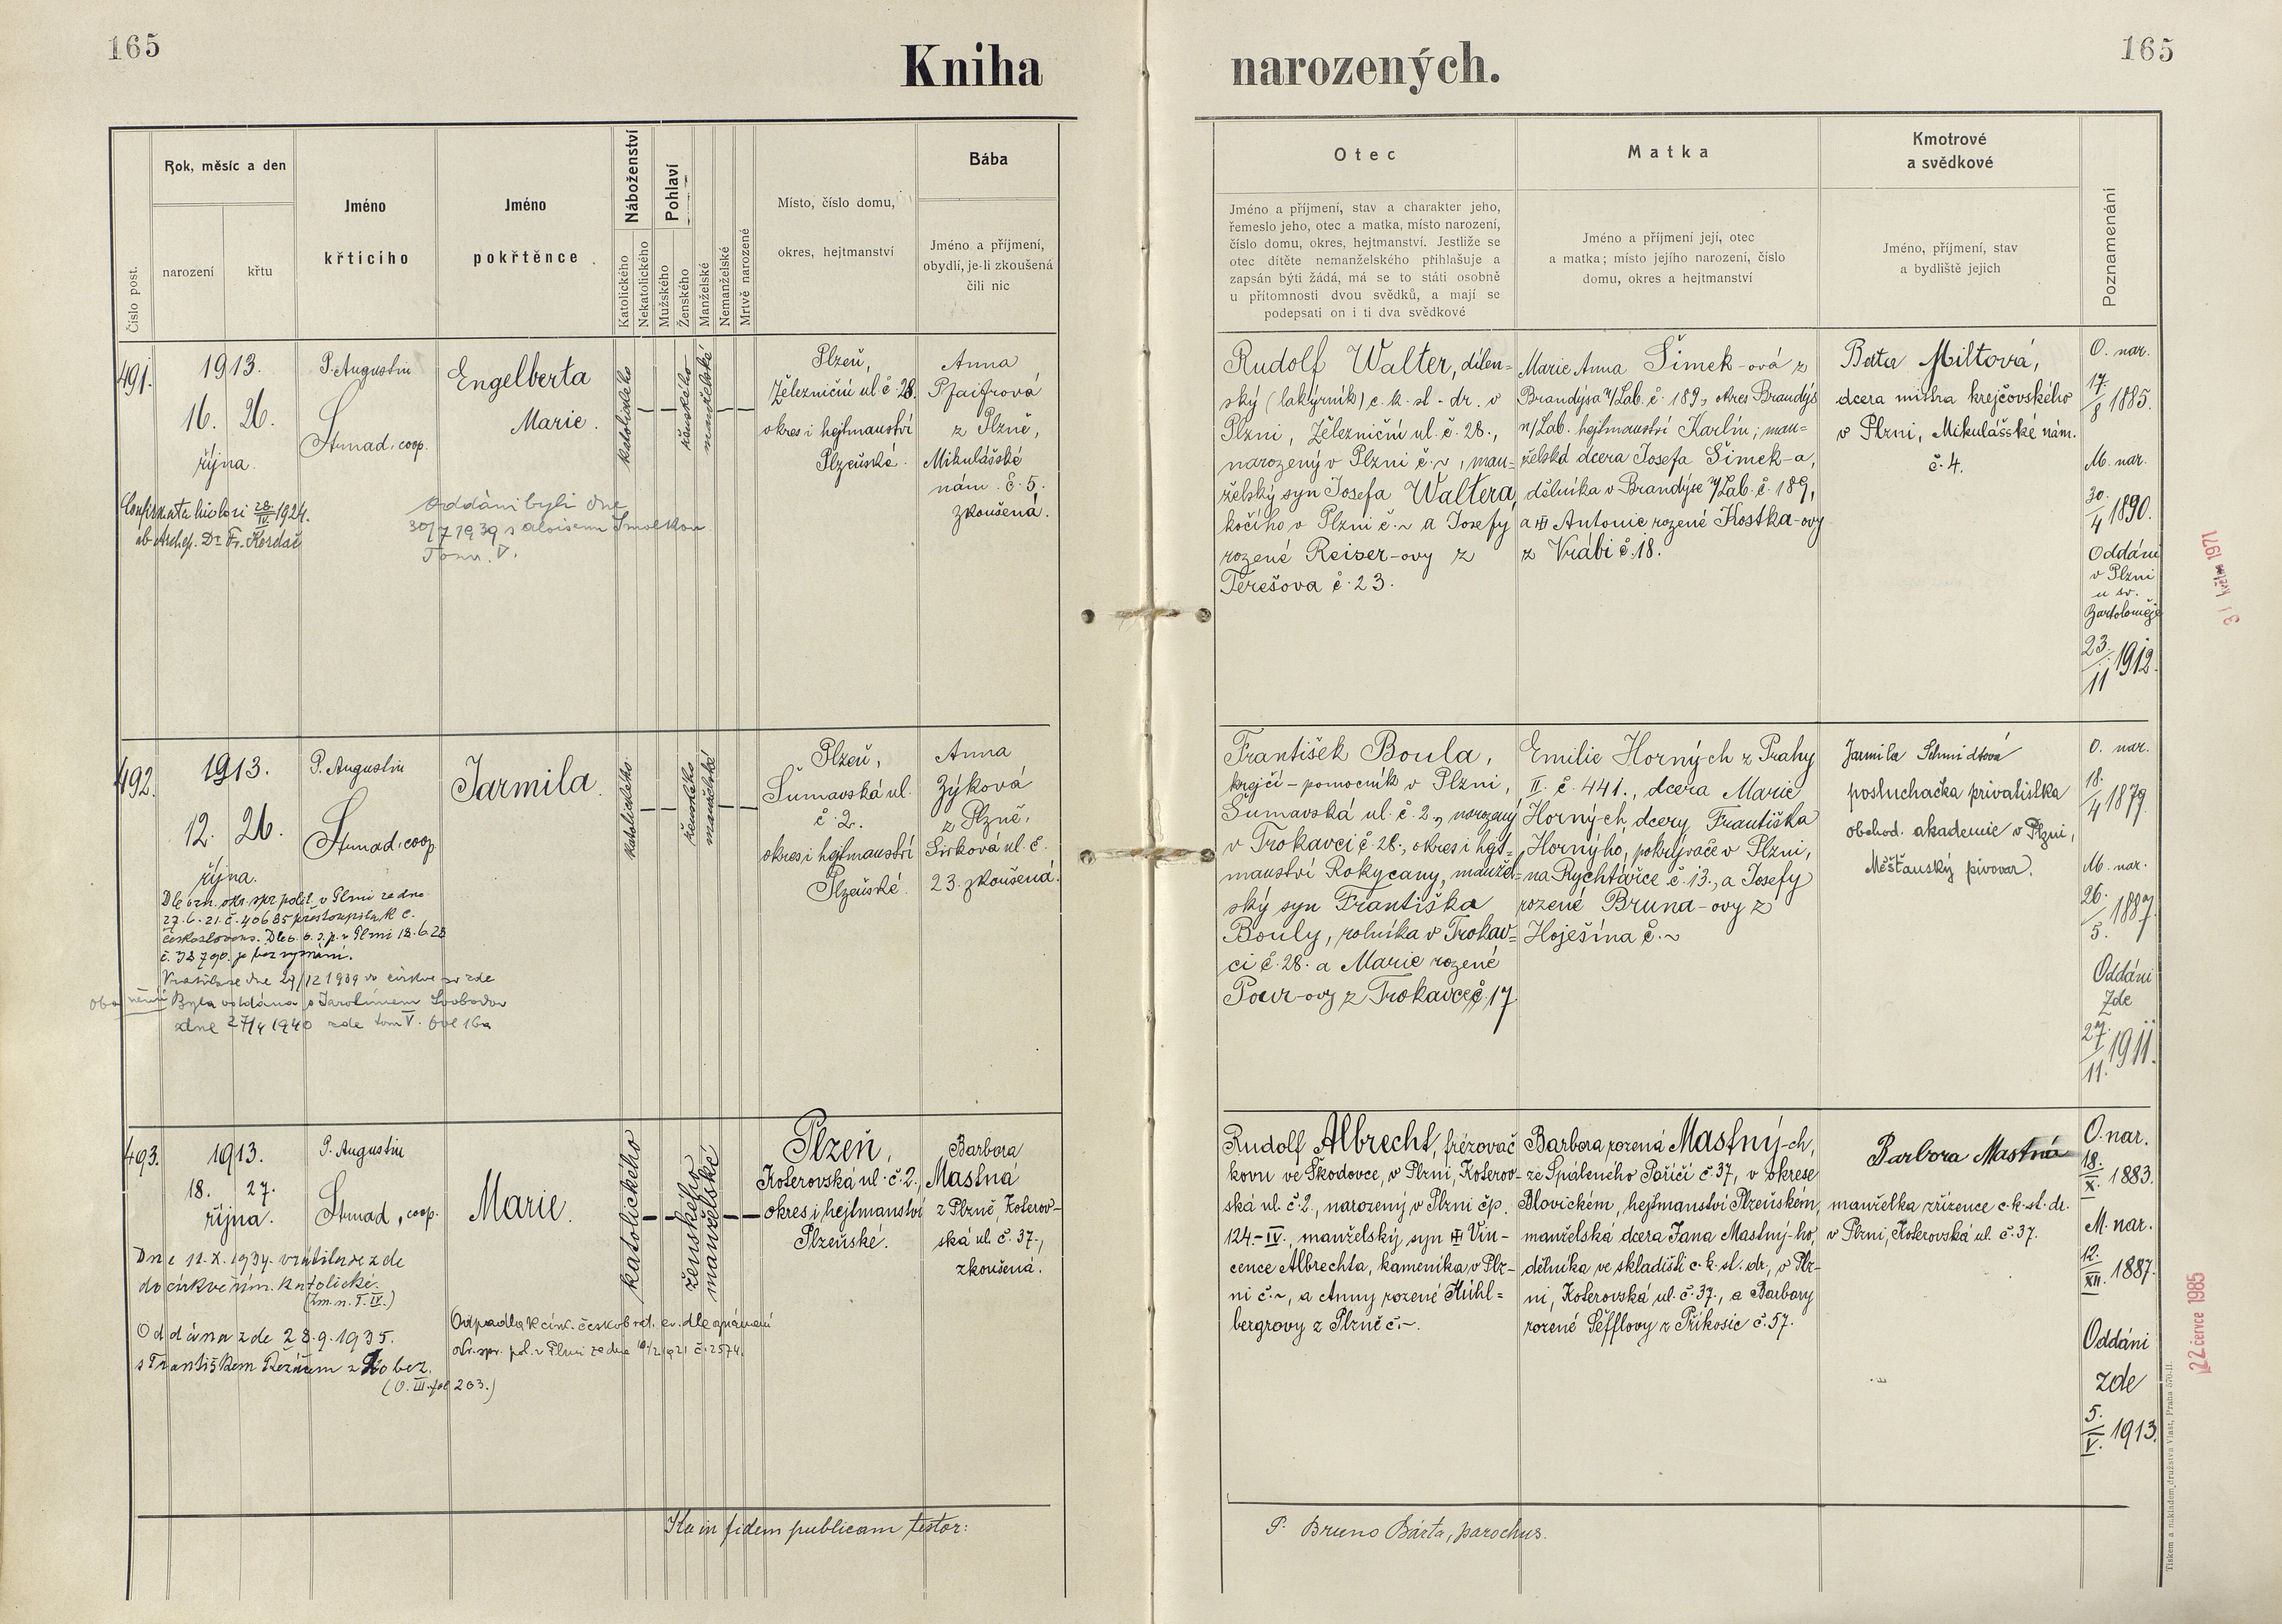 165
Kniha
narozených.
165
Číslo post.
Rok, měsíc a den
narození
křtu
Jméno
křticího
Jméno
pokřtěnce
Náboženství
Katolického
Nekatolického
Pohlaví
Mužského
Ženského
Manželské
Nemanželské
Mrtvě narozené
Místo, číslo domu,
okres, hejtmanství
Bába
Jméno a příjmení,
obydlí, je-li zkoušená
čili nic
Otec
Jméno a příjmení, stav a charakter jeho,
řemeslo jeho, otec a matka, místo narození,
číslo domu, okres, hejtmanství. Jestliže se
otec dítěte nemanželského přihlašuje a
zapsán býti žádá, má se to státi osobně
u přítomnosti dvou svědků, a mají se
podepsati on i ti dva svědkové
Matka
Jméno a příjmení její, otec
a matka; místo jejího narození, číslo
domu, okres a hejtmanství
Kmotrové
a svědkové
Jméno, příjmení, stav
a bydliště jejich
Poznamenání
491.
1913.
16. 26.
října.
P. Augustin
Strnad, coop.
Engelberta
Marie.
katolického
ženského
manželské
Plzeň,
Železniční ul. č. 28.
okres i hejtmanství
Plzeňské.
Anna
Pfaifrová
z Plzně,
Mikulášské
nám. č. 5.
zkoušená.
1924.
ab Archiep. Dr. Fr. Kordač
Oddáni byli dne
30/7 1939 s Aloisem Smolkou
Tom. V.
Rudolf Walter, dílen-
ský (lakýrník) c. k. st. dr. v
Plzni, Železniční ul. č. 28.,
narozený v Plzni č. ~, man-
želský syn Josefa Waltera,
kočího v Plzni č. ~ a Josefy
rozené Reiser-ovy z
Terešova č. 23.
Marie Anna Šimek-ová z
Brandýsa n/Lab. č. 189, okres Brandýs
n/Lab. hejtmanství Karlín; man-
želská dcera Josefa Šimek-a,
dělníka v Brandýse n/Lab. č. 189,
a Antonie rozené Kostka-ovy
z Vrábí č. 18.
Beata Miltová,
dcera mistra krejčovského
v Plzni, Mikulášské nám.
č. 4.
O. nar.
17./8 1885.
M. nar.
30./4 1890.
Oddáni
v Plzni
u sv.
Bartoloměje
23./11 1912.
492.
1913.
12. 26.
října.
P. Augustin
Strnad, coop.
Jarmila.
katolického
ženského
manželské
Plzeň,
Šumavská ul.
č. 2.
okres i hejtmanství
Plzeňské.
Anna
Zýková
z Plzně,
Sirková ul. č.
23. zkoušená.
Dle ozn. okr. spr. polit. v Plzni ze dne
27.6.21. č. 40685 přestoupila k c.
českoslovens. Dle o. s. p. v Plzni 18.6.28
č. 38790. je bez vyznání.
Vrátila se dne 29/12 1939 do církve zde
Byla oddána s Jarolímem Svobodou
dne 27/4 1940 zde tom V. fol 16a
František Boula,
krejčí-pomocník v Plzni,
Šumavská ul. č. 2., narozený
v Trokavci č. 28., okres i hejt-
manství Rokycany, manžel-
ský syn Františka
Bouly, rolníka v Trokav-
ci č. 28. a Marie rozené
Pour-ovy z Trokavce č. 17.
Emilie Horných z Prahy
II. č. 441., dcera Marie
Horných, dcery Františka
Horného, pokrývače v Plzni,
na Rychtářce č. 13., a Josefy
rozené Bruna-ovy z
Hoješína č. ~
Jarmila Schmidtová
posluchačka privatistka
obchod. akademie v Plzni,
Měšťanský pivovar.
O. nar.
18./4 1879.
M. nar.
26./5. 1887.
Oddáni
Zde
27./11. 1911.
493.
1913.
18. 27.
října.
P. Augustin
Strnad, coop.
Marie.
katolického
ženského
manželské
Plzeň,
Koterovská ul. č. 2.,
okres i hejtmanství
Plzeňské.
Barbora
Mastná
z Plzně, Koterov-
ská ul. č. 37.,
zkoušená.
Dne 11.X.1934. vrátila se zde
do církve řím. katolické.
(Zm. n. T. IV.)
Oddána zde 28.9.1935.
s Františkem Řezáčem z Lobez.
(O. III. fol 203.)
Odpadla k círk. českobrat. ev. dle oznámení
okr. spr. pol. v Plzni ze dne 10/2 1921 č. 2574.
Rudolf Albrecht, frézovač
kovu ve Škodovce, v Plzni, Koterov-
ská ul. č. 2., narozený v Plzni čp.
124.-IV., manželský syn Vin-
cence Albrechta, kameníka v Plz-
ni č. ~, a Anny rozené Mühl-
bergrovy z Plzně č. ~.
Barbora rozená Mastný-ch,
ze Spáleného Poříčí č. 37, v okrese
Blovickém, hejtmanství Plzeňském,
manželská dcera Jana Mastný-ho,
dělníka ve skladišti c. k. st. dr., v Plz-
ni, Koterovská ul. č. 37., a Barbory
rozené Šefflovy z Příkosic č. 57.
Barbora Mastná
manželka zřízence c. k. st. dr.
v Plzni, Koterovská ul. č. 37.
O. nar.
18./X. 1883.
M. nar.
12./XII. 1887.
Oddáni
zde
5./V. 1913.
31 května 1971
22 července 1985
Ita in fidem publicam testor:
P. Bruno Bárta, parochus.
Tiskem a nákladem družstva Vlast, Praha 570-II.